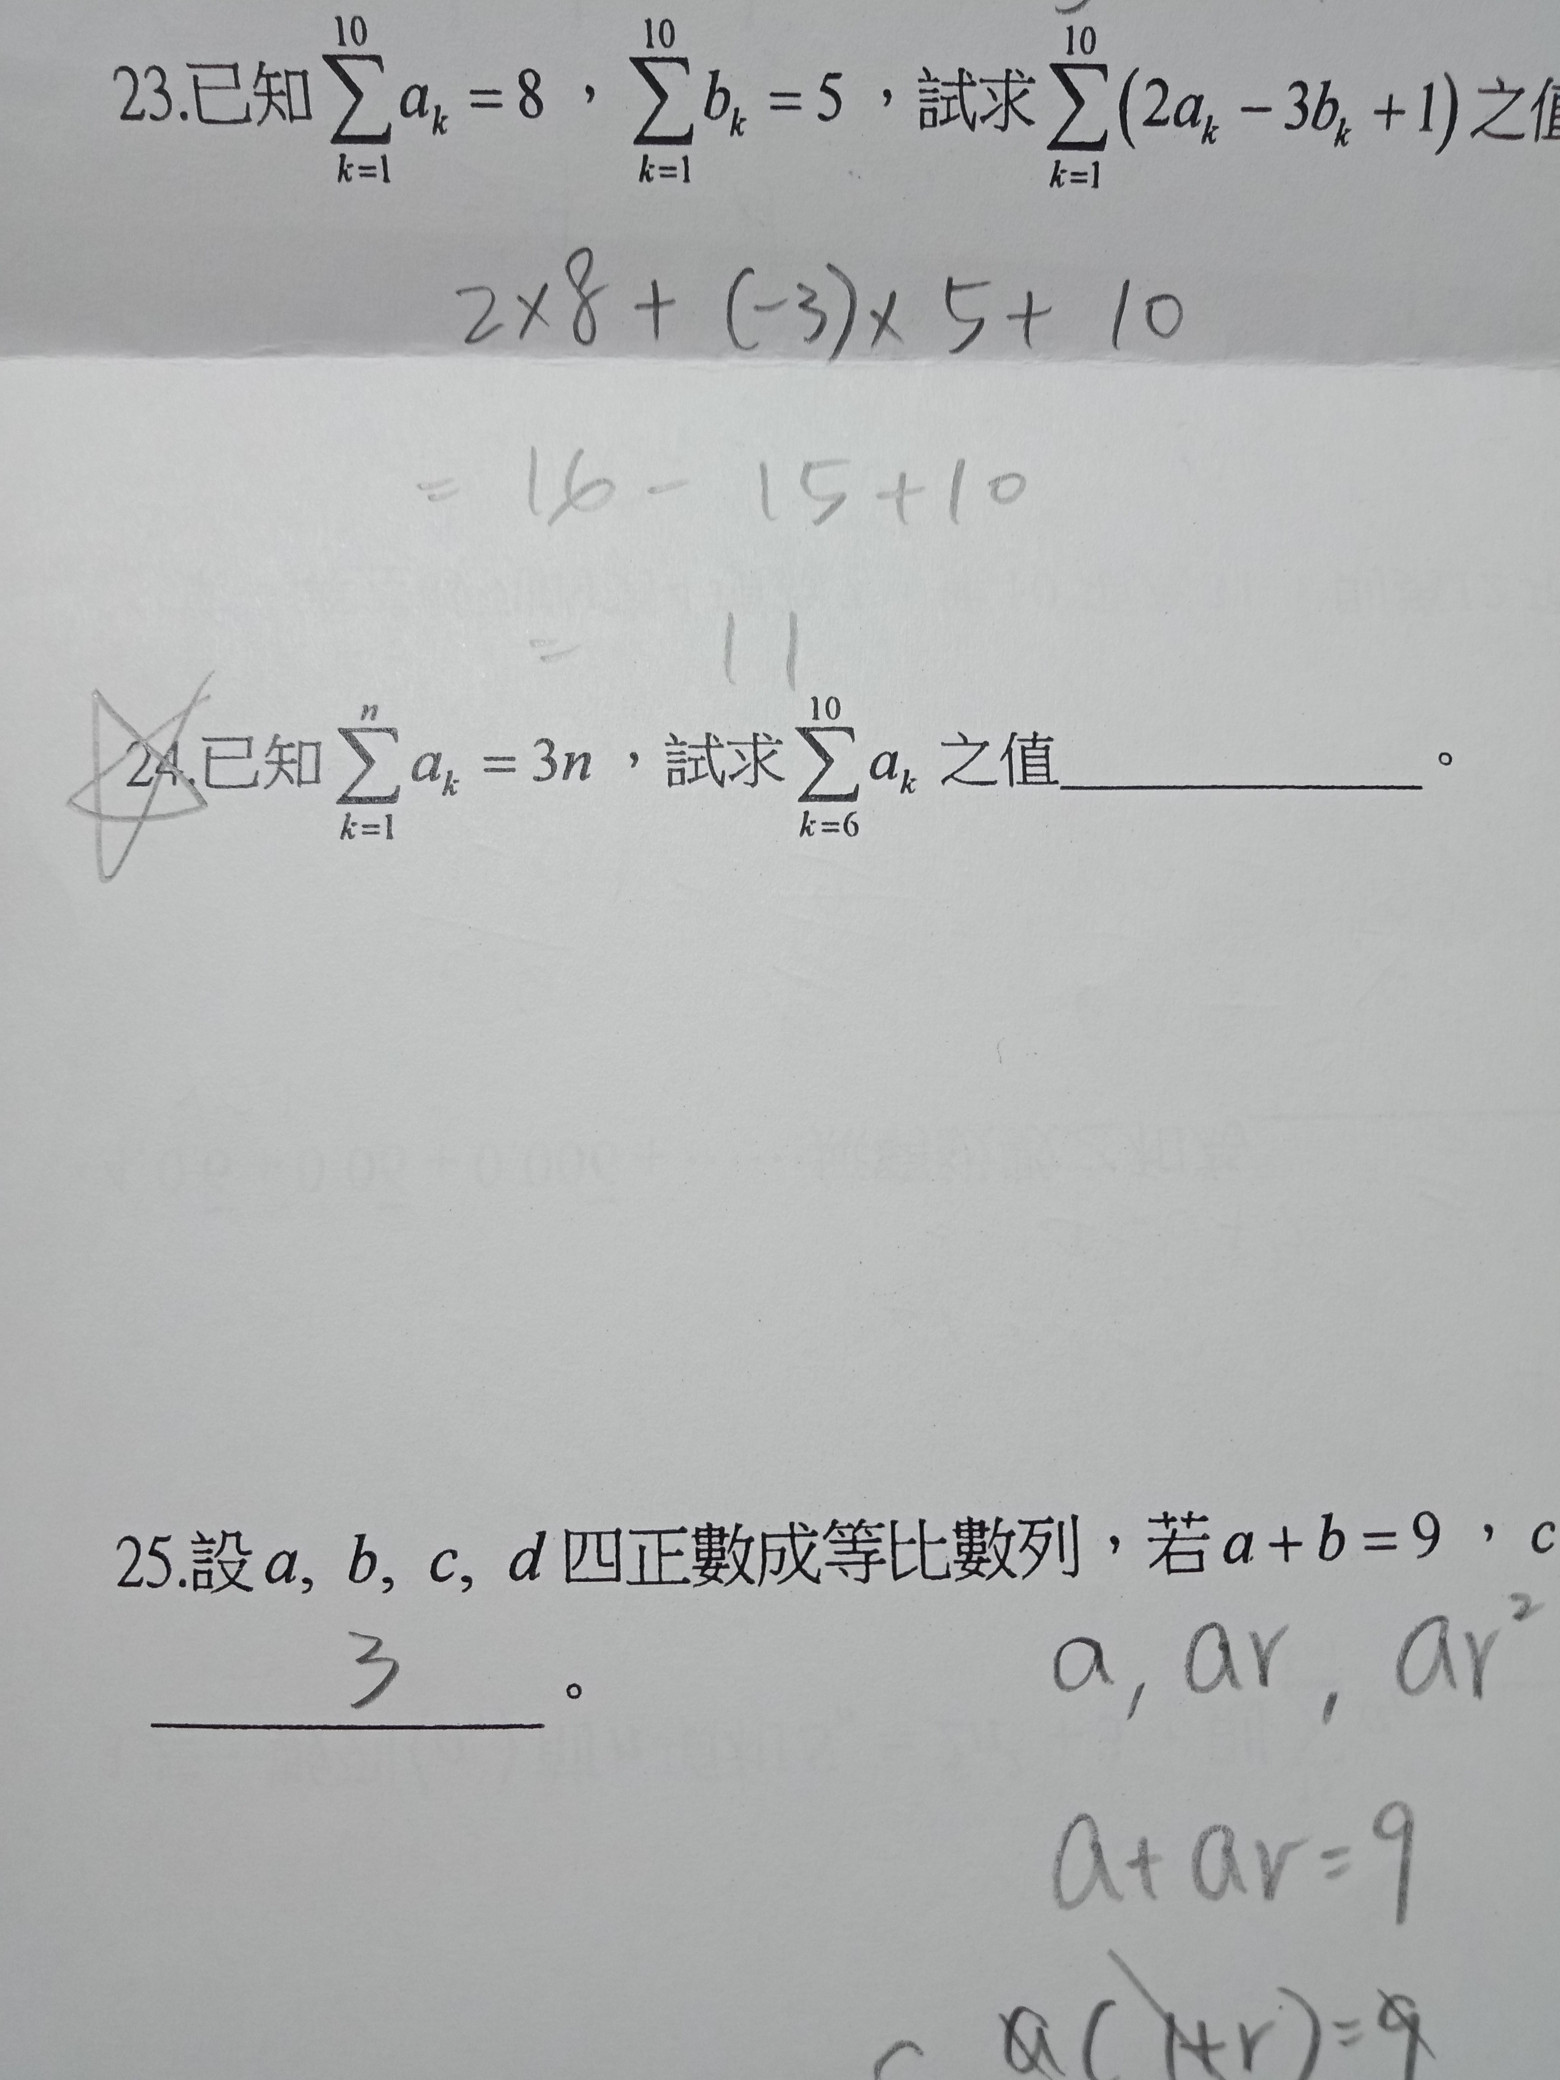 23.已知 \sum_{k=1}^{10} a_k = 8，\sum_{k=1}^{10} b_k = 5，試求 \sum_{k=1}^{10} (2a_k - 3b_k + 1) 之值
2×8 + (-3)× 5 + 10
= 16 - 15 + 10
= 11
24.已知 \sum_{k=1}^{n} a_k = 3n，試求 \sum_{k=6}^{10} a_k 之值__________。
25.設 a, b, c, d 四正數成等比數列，若 a + b = 9，c
3 。
a, ar, ar²
a + ar = 9
a(1+r) = 9